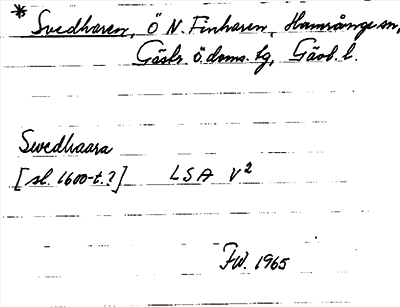 * Svedharen, Ö N. Finnharen, Hamrånge sn,
Gästr. ö. doms. tg, Gävl. l.
Swedhaara
[sl. 1600-t.?] LSA V²
FW. 1965